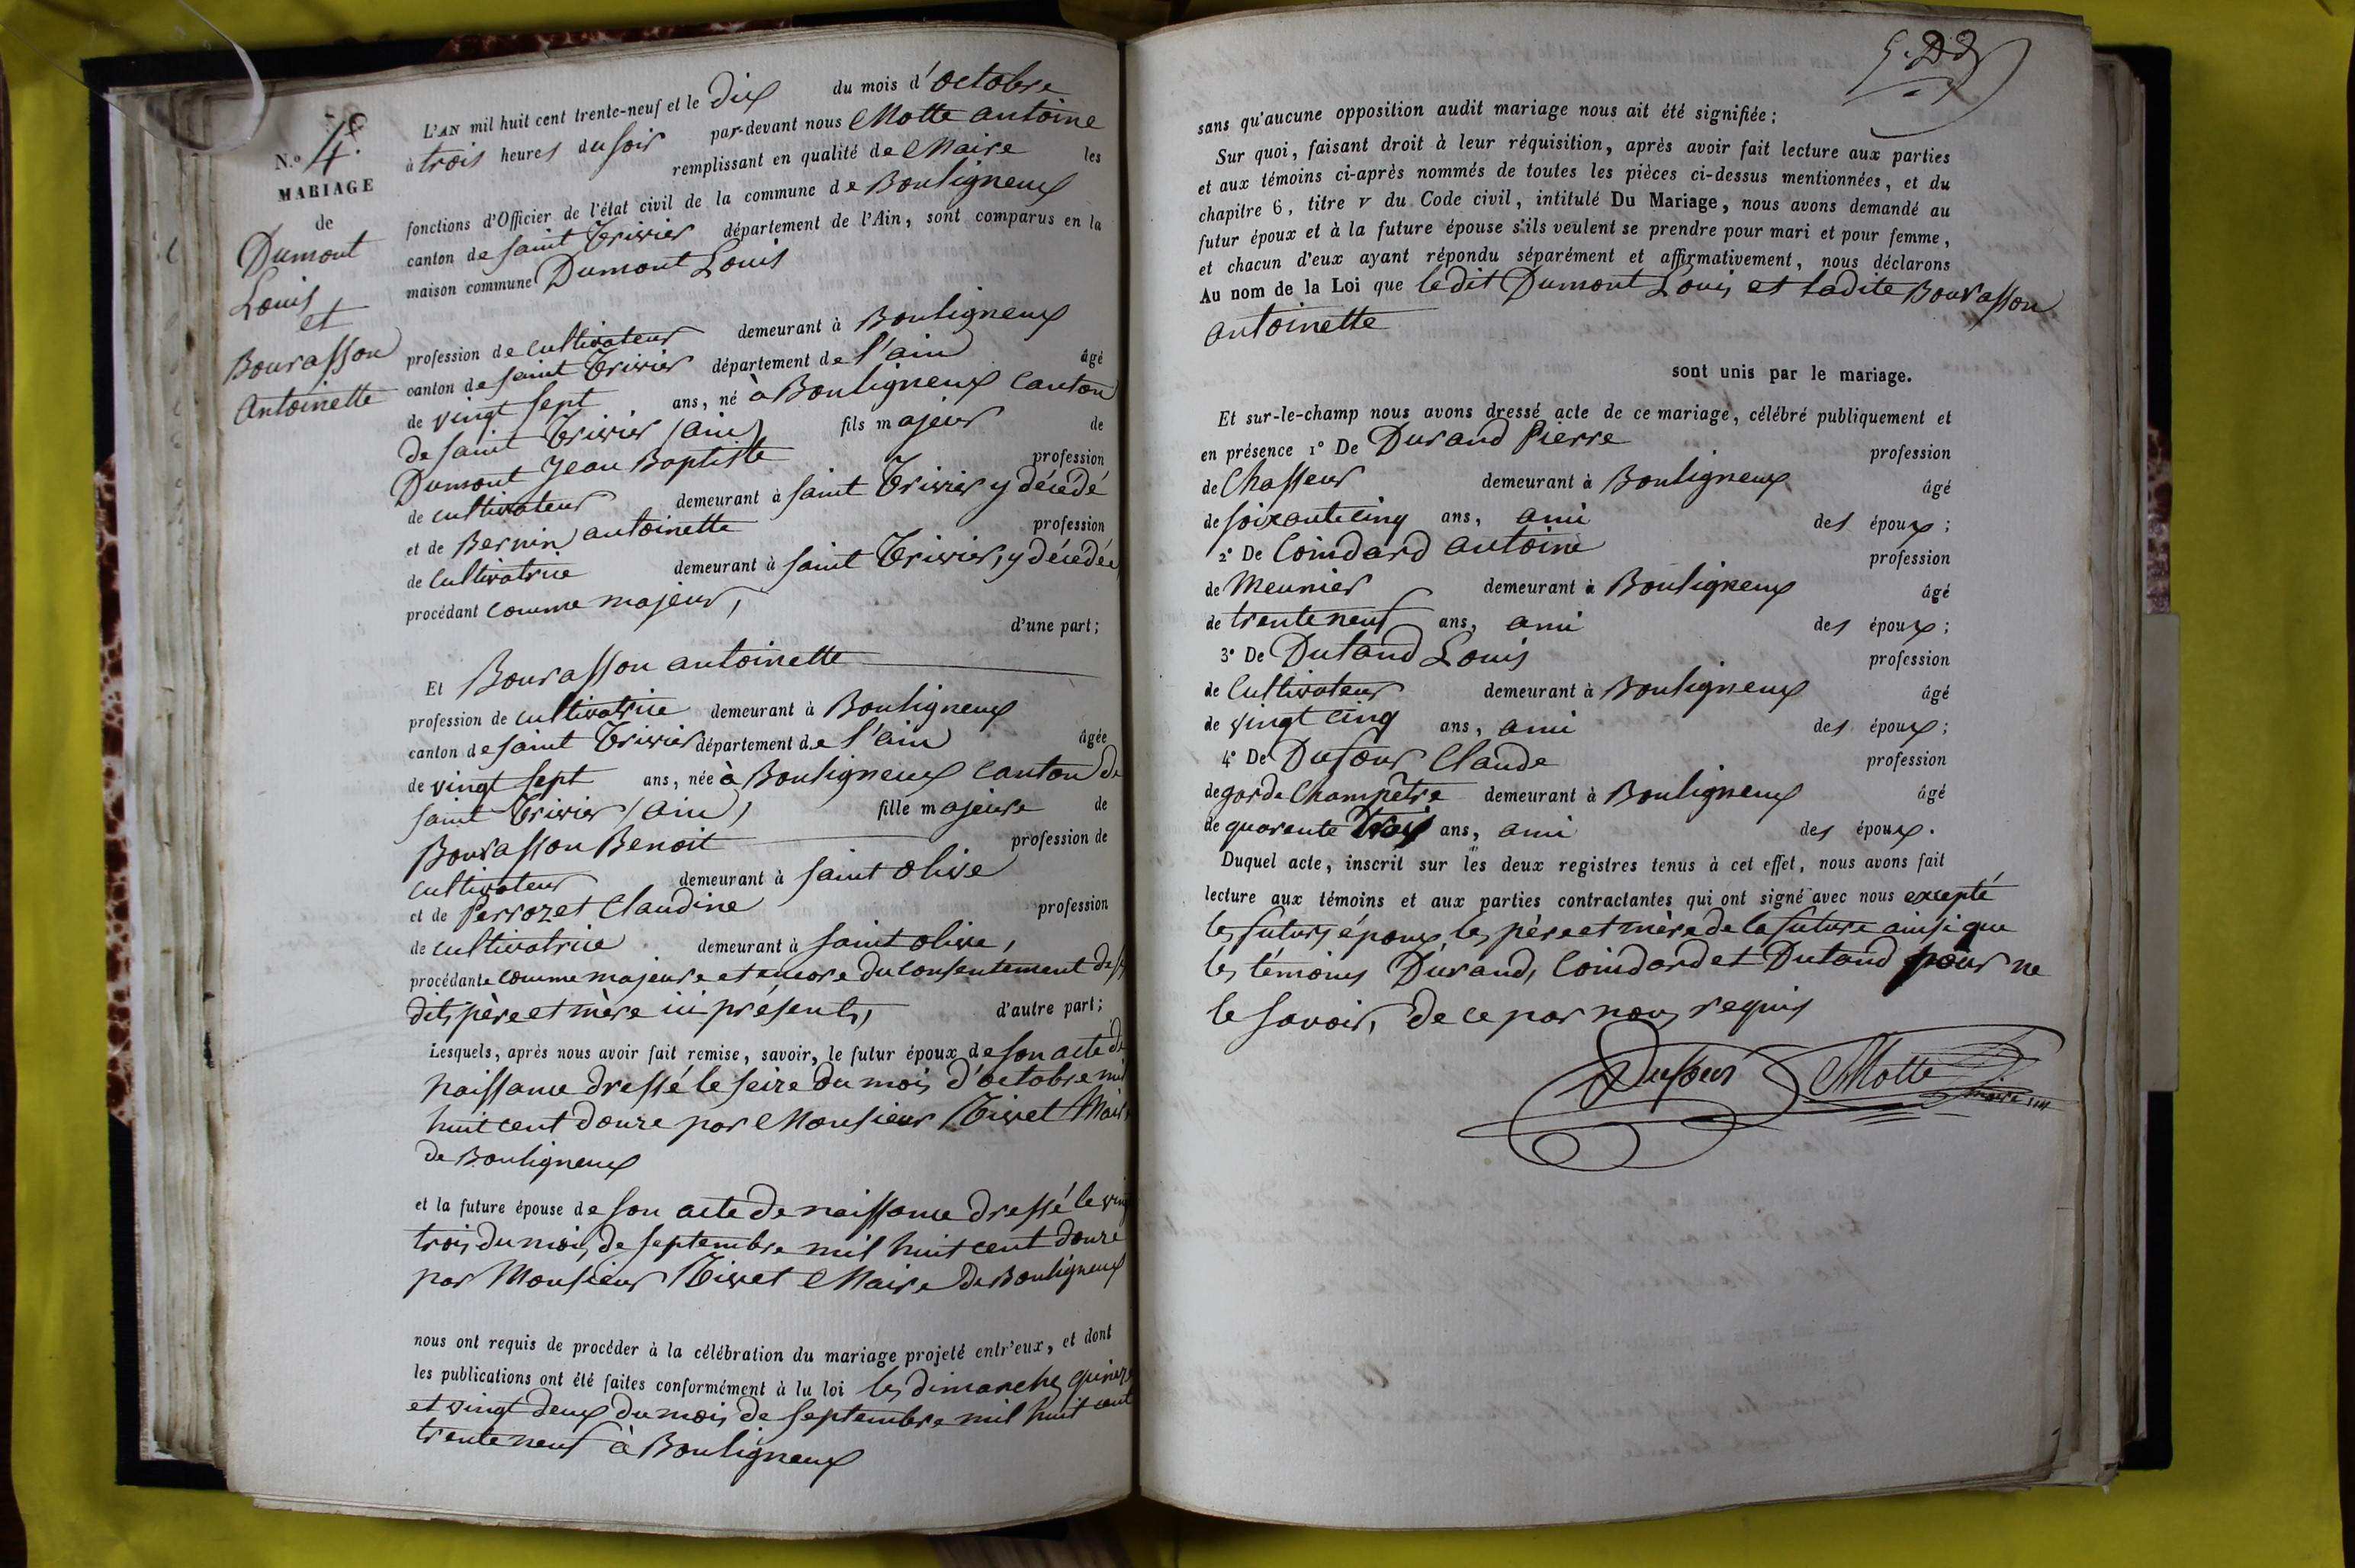 N.o 4.
MARIAGE
de
Dumont
Louis
et
Bourasson
Antoinette
L'AN mil huit cent trente-neuf et le Dix du mois d'octobre
à trois heures du soir par-devant nous Motte antoine
remplissant en qualité de Maire les
fonctions d'Officier de l'état civil de la commune de Bouligneux
canton de saint Trivier département de l'Ain, sont comparus en la
maison commune Dumont Louis
profession de cultivateur demeurant à Bouligneux
canton de saint Trivier département de l'ain âgé
de vingt sept ans, né à Bouligneux Canton
de saint Trivier (ain) fils majeur de
Dumont Jean Baptiste profession
de cultivateur demeurant à saint Trivier y décédé
et de Bernin antoinette profession
de Cultivatrice demeurant à saint Trivier, y décédée
procédant comme majeur,
d'une part;
Et Bourasson antoinette
profession de cultivatrice demeurant à Bouligneux
canton de saint Trivier département de l'ain âgée
de vingt sept ans, née à Bouligneux Canton de
saint Trivier (ain) fille majeure de
Bourasson Benoit profession de
cultivateur demeurant à saint olive
et de Perrozet Claudine profession
de cultivatrice demeurant à saint olive,
procédante comme majeure et encore du consentement des
dits père et mère ici présents, d'autre part;
Lesquels, après nous avoir fait remise, savoir, le futur époux de son acte de
naissance dressé le seize du mois d'octobre mil
huit cent douze par Monsieur Tivet Maire
de Bouligneux
et la future épouse de son acte de naissance dressé le vingt
trois du mois de septembre mil huit cent douze
par Monsieur Tivet Maire de Bouligneux
nous ont requis de procéder à la célébration du mariage projeté entr'eux, et dont
les publications ont été faites conformément à la loi les dimanches quinze
et vingt deux du mois de septembre mil huit cent
trente neuf à Bouligneux
sans qu'aucune opposition audit mariage nous ait été signifiée;
Sur quoi, faisant droit à leur réquisition, après avoir fait lecture aux parties
et aux témoins ci-après nommés de toutes les pièces ci-dessus mentionnées, et du
chapitre 6, titre v du Code civil, intitulé Du Mariage, nous avons demandé au
futur époux et à la future épouse s'ils veulent se prendre pour mari et pour femme,
et chacun d'eux ayant répondu séparément et affirmativement, nous déclarons
Au nom de la Loi que ledit Dumont Louis et ladite Bourasson
antoinette
sont unis par le mariage.
Et sur-le-champ nous avons dressé acte de ce mariage, célébré publiquement et
en présence 1° De Durand Pierre profession
de Chasseur demeurant à Bouligneux âgé
de soixante cinq ans, ami des époux;
2° De Coindard antoine profession
de Meunier demeurant à Bouligneux âgé
de trente neuf ans, ami des époux;
3° De Dutand Louis profession
de Cultivateur demeurant à Bouligneux âgé
de vingt cinq ans, ami des époux;
4° De Dufour Claude profession
de garde Champêtre demeurant à Bouligneux âgé
de quarante trois ans, ami des époux.
Duquel acte, inscrit sur les deux registres tenus à cet effet, nous avons fait
lecture aux témoins et aux parties contractantes qui ont signé avec nous excepté
les futurs époux, les père et mère de la future ainsi que
les témoins Durand, Coindard et Dutand pour ne
le savoir, de ce par nous requis
Duffour Motte
maire